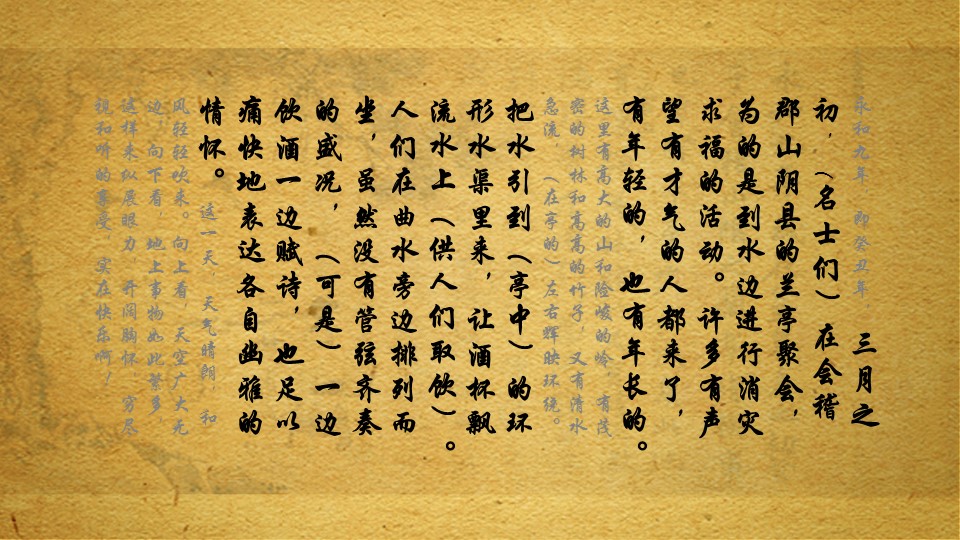 永和九年，即癸丑年，三月之
初，（名士们）在会稽
郡山阴县的兰亭聚会，
为的是到水边进行消灾
求福的活动。许多有声
望有才气的人都来了，
有年轻的，也有年长的。
这里有高大的山和险峻的岭，有茂
密的树林和高高的竹子，又有清水
急流，（在亭的）左右辉映环绕。
把水引到（亭中）的环
形水渠里来，让酒杯飘
流水上（供人们取饮）。
人们在曲水旁边排列而
坐，虽然没有管弦齐奏
的盛况，（可是）一边
饮酒一边赋诗，也足以
痛快地表达各自幽雅的
情怀。这一天，天气晴朗，和
风轻轻吹来。向上看，天空广大无
边，向下看，地上事物如此繁多，
这样来纵展眼力，开阔胸怀，穷尽
视和听的享受，实在快乐啊！